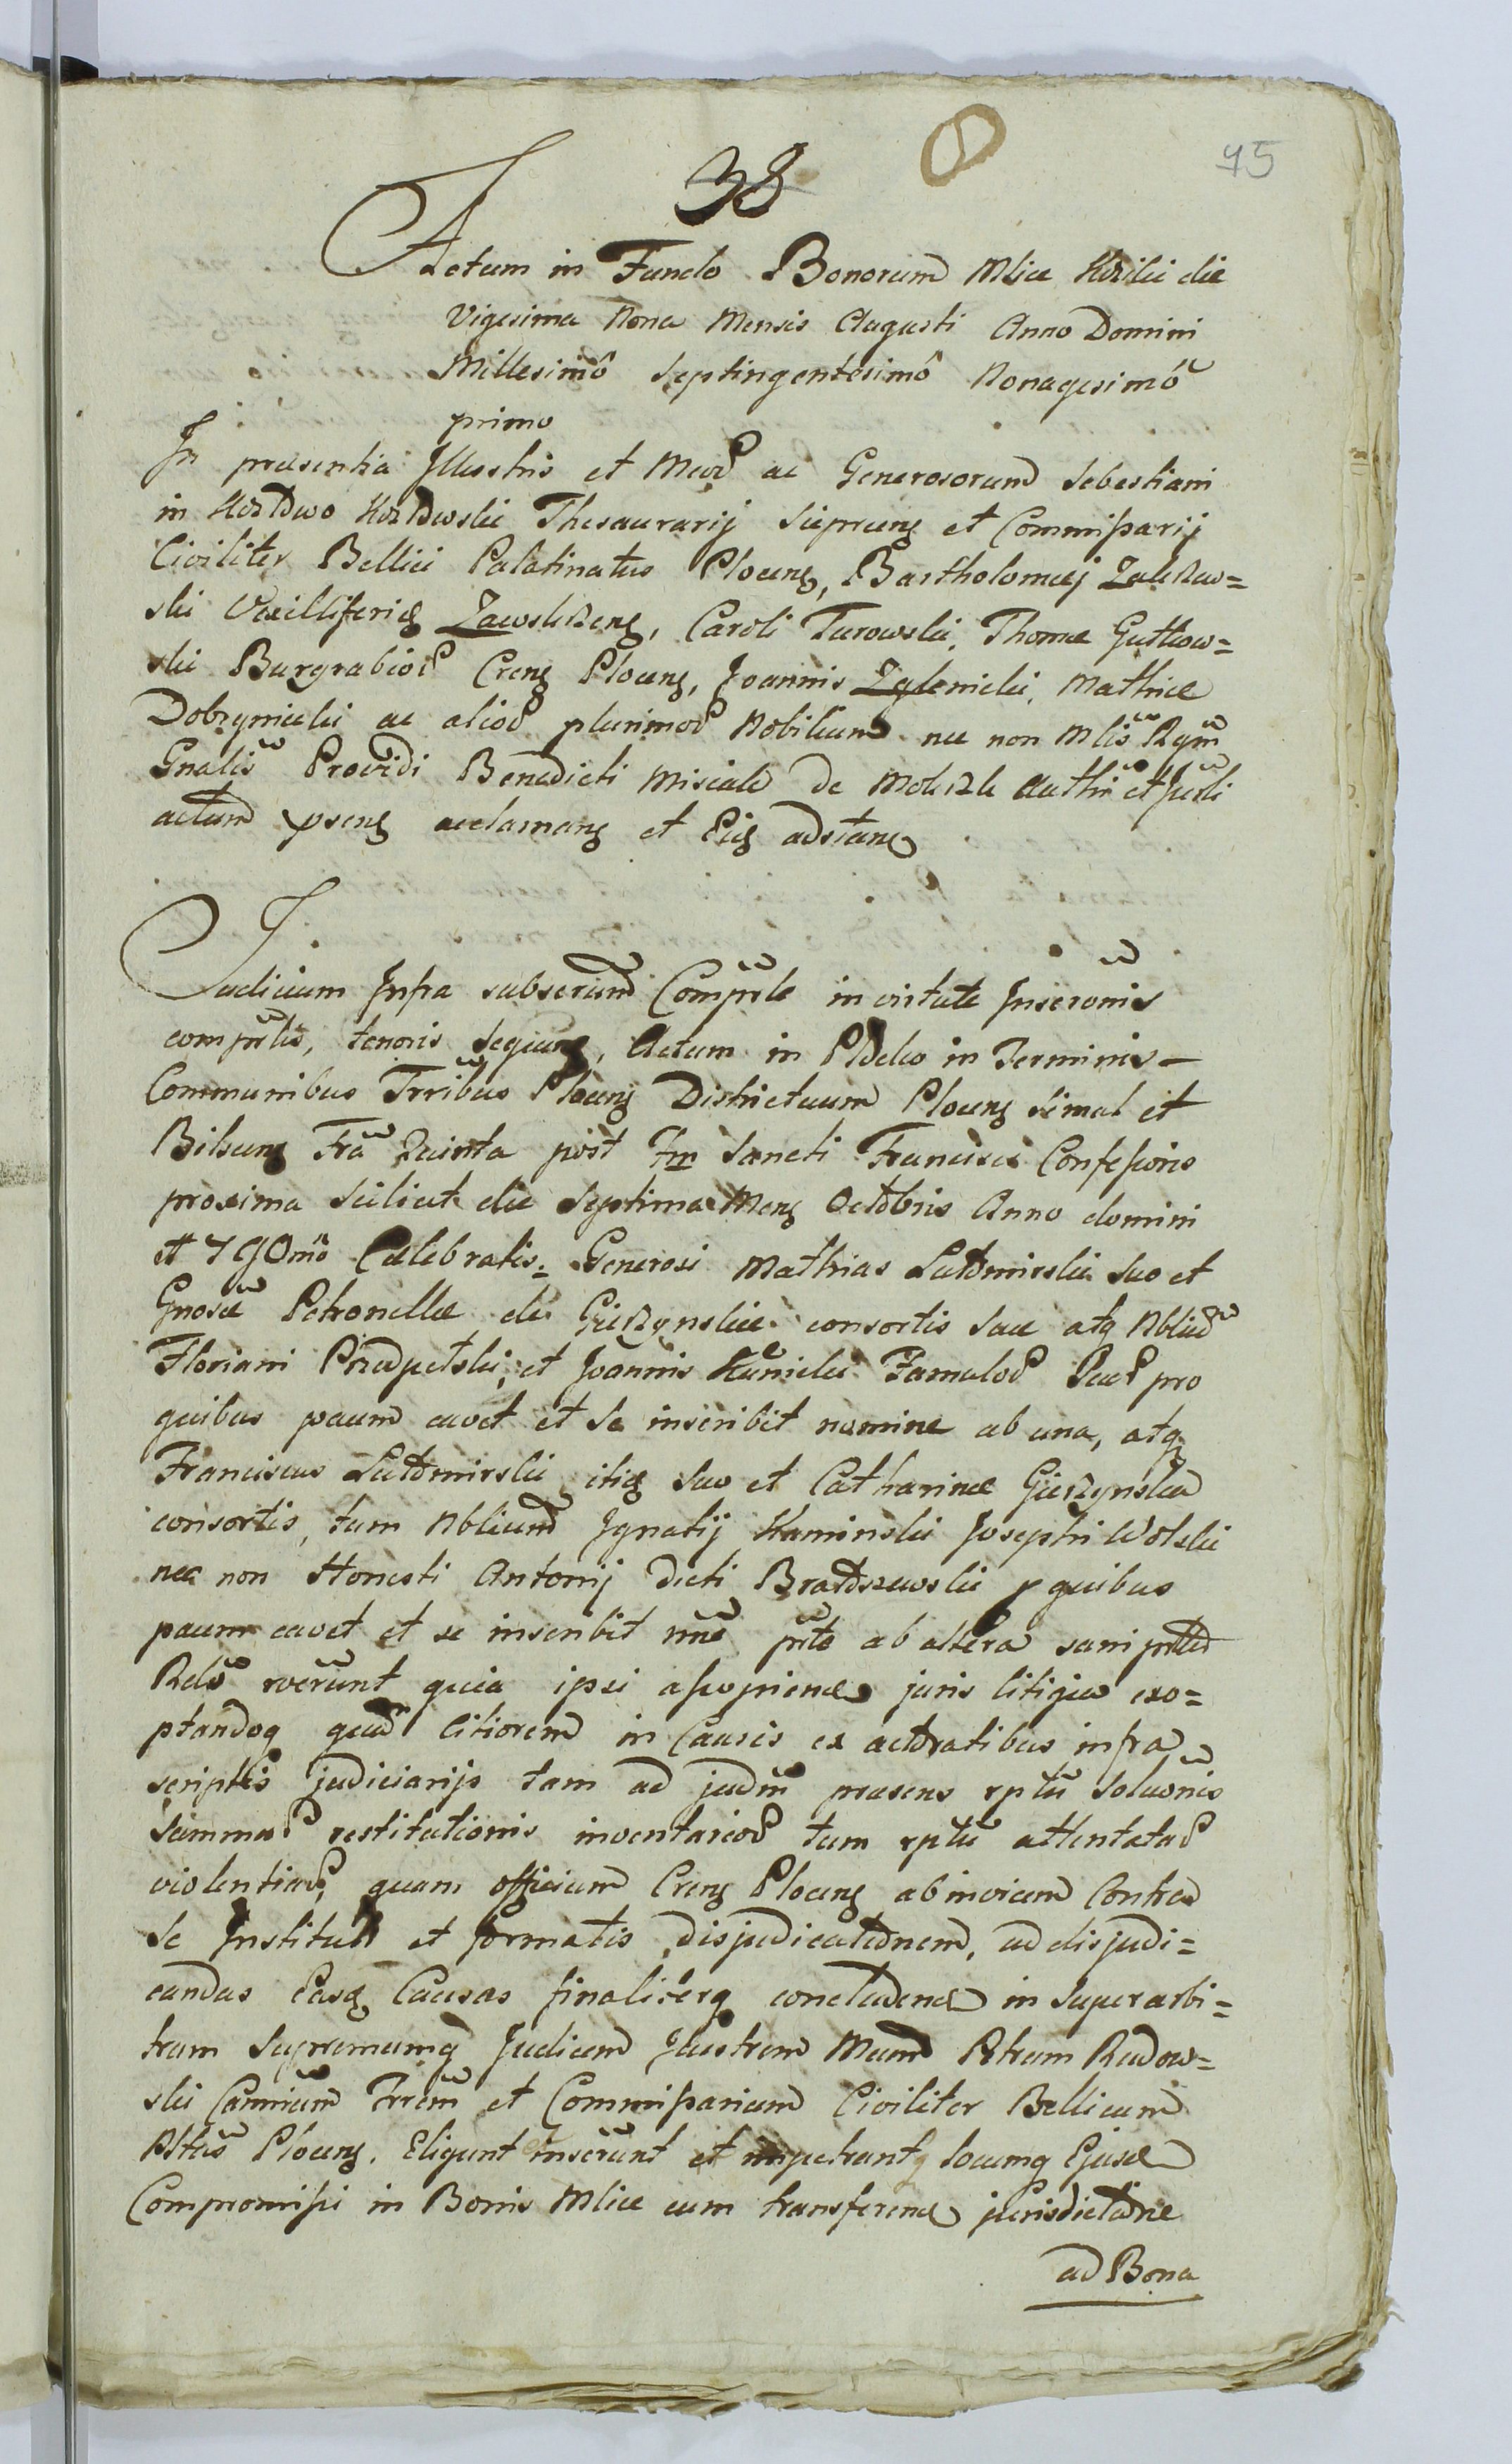 38
75
Actum in Fundo Bonorum Mlice Kozilki die
Vigesima Nona Mensis Augusti Anno Domini
Millesimô Septingentesimô Nonagesimô
primo
In praesentia Illustris et ac Generosorum Sebastiani
in Thesaurarij Sieprcens et Commissarij
Civiliter Bellici Palatinatus Plocens, Bartholomei Zaleskow=
ski Vexilliferid Zawskrzens, Caroli Turowski, Thomae Gutkow=
ski Burgrabior Crens Plocens, Joannis Zglenicki, Mathiae
Dobrzynicki ac alior plurimor Nobilium nec non Mlis Rgni
Gnalis Providi Benedicti Misiak de et
actum psens acclamans et Eid adstan
Judicium Infra subscrium Compsle in virtute Inscronis
compslis, tenoris sequens, Actum in Plocko in Terminis –
Communibus Trribus Plocens Districtuum Plocens simul et
Bilscens Fra Quinta post Fm Sancti Francisci Confessoris
proxima scilicet die Septima Mens Octobris Anno domini
1790mo Celebratis. Generosi Mathias Lutomirski suo et
Gnosae Petronellae de Giżyńskie consortis suae atq Nblium
Floriani et Joannis Kunicki Famulor suor pro
quibus pacum cavet et se inscribit nomine ab una, atq
Franciscus Lutomirski itid suo et Catharinae Giżyńska
consortis, tum Nblium Ignatij Kaminski Josephi Wolski
nec non Honesti Antonij dicti p quibus
pacum cavet et se inscribit nne ab altera sani
quia ipsi juris litigio exo=
ptandoq citiorem in Causis ex actoratibus infra
scriptis judiciarijs tam ad judm praesens rptu soluonis
Summar restitutionis inventarior tum rptu attentatar
violentiar, quam officium Crens Plocens ab invicem Contra
se Institutis et formatis, disjudicationem, ad disjudi=
candas Easq Causas finaliterq concludend in superarbi=
trum Supremumq Judicem Illustrem Petrum Radow=
ski Camrium Trrem et Commissarium Civiliter Bellicum
Pltus Plocens. Eligunt inscrunt et impetrant, locumq Ejusd
Compromissi in Bonis Mlice cum transferend jurisdictione
ad Bona